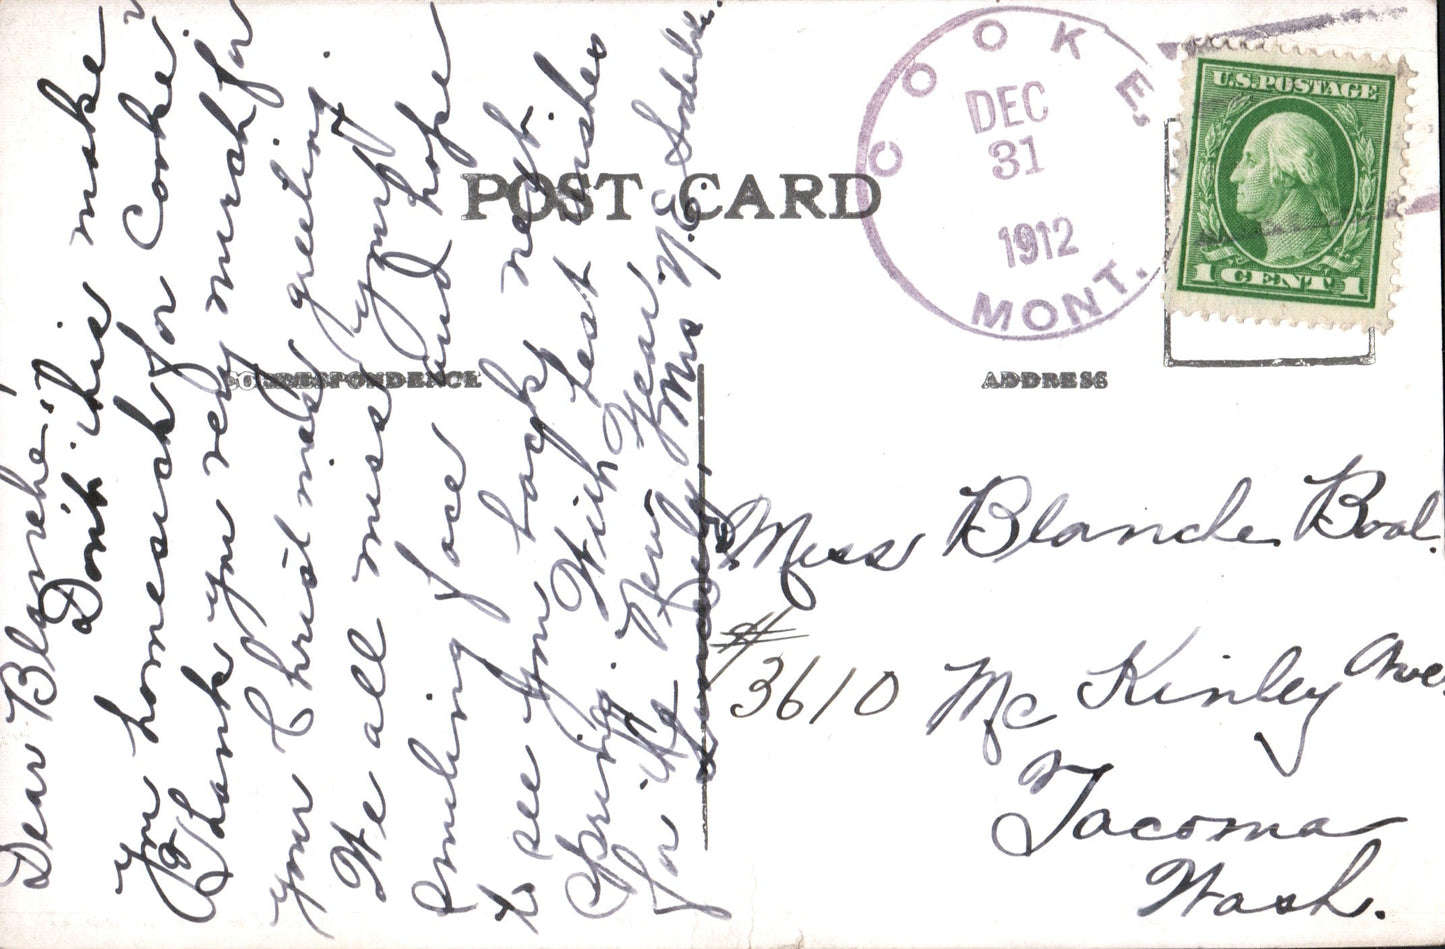 COOKE,
DEC
31
1912
MONT.
U.S. POSTAGE
1 CENT 1
POST CARD
CORRESPONDENCE
ADDRESS
Dear Blanche:-
Don't this make
you homesick for Cooke?
Thank you very much for
your Christmas greeting.
We all miss your
smiling face and hope
to see you back next
Spring. With best wishes
for the New Year.
Sincerely, Mrs. N. E.
Miss Blanche Boal.
#3610 McKinley Ave.
Tacoma
Wash.